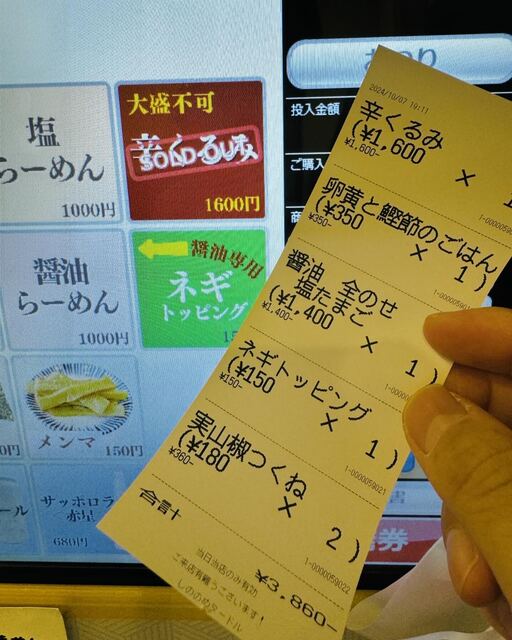 おつり
投入金額
大盛不可
辛くるみ
SOLD OUT
1600円
塩
らーめん
1000円
醤油
らーめん
1000円
醤油専用
ネギ
トッピング
メンマ 150円
サッポロラ
赤星
680円
2024/10/07 19:11
辛くるみ
(¥1,600 × 1
¥1,600-
卵黄と鰹節のごはん
(¥350 × 1)
¥350-
醤油 全のせ
塩たまご
(¥1,400 × 1)
¥1,400-
ネギトッピング
(¥150 × 1)
¥150-
1-0000059021
実山椒つくね
(¥180 × 2)
¥360-
1-0000059022
合計 ¥3,860-
当日当店のみ有効
ご来店有難うございます!
しののめタートル